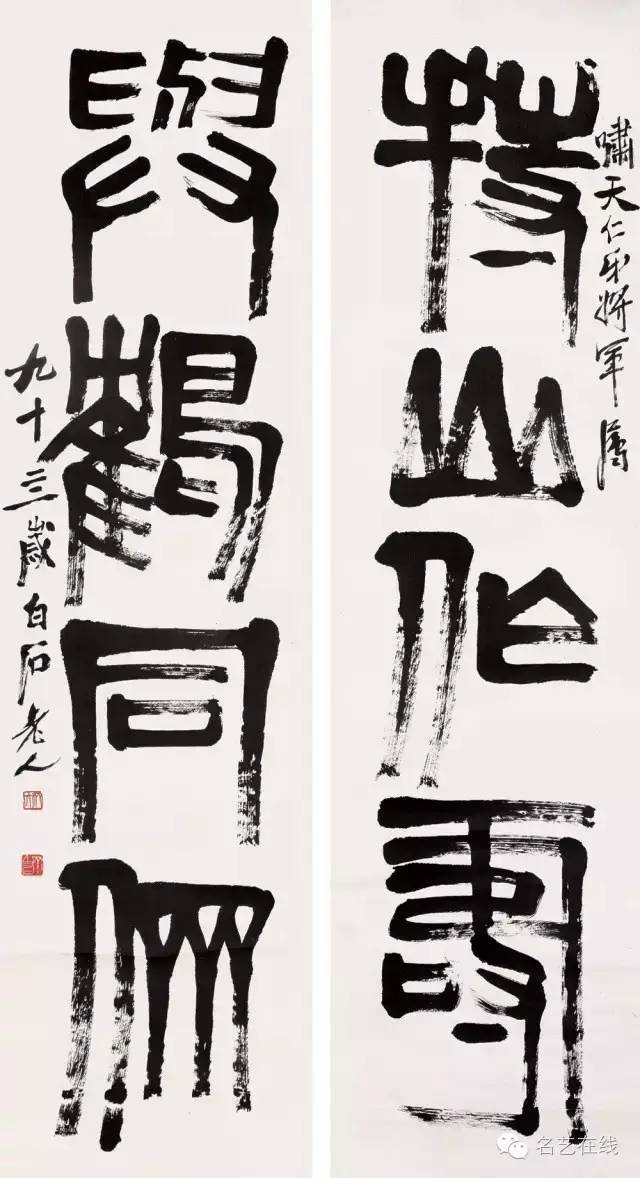 嘯天仁弟將軍屬
持山作壽
與鶴同
九十三歲白石老人
名艺在线